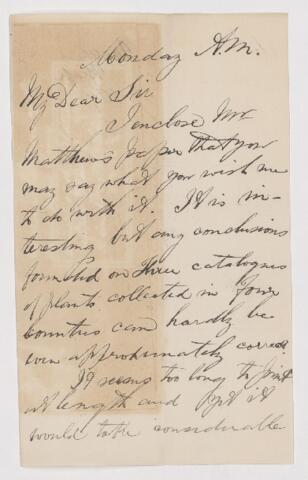 Monday A.M.
My Dear Sir
I enclose Mr
Matthews paper that you
may say what you wish me
to do with it. It is in-
teresting but any conclusions
founded on three catalogues
of plants collected in four
counties can hardly be
even approximately correct.
It seems too long to print
at length and yet it
would take considerable